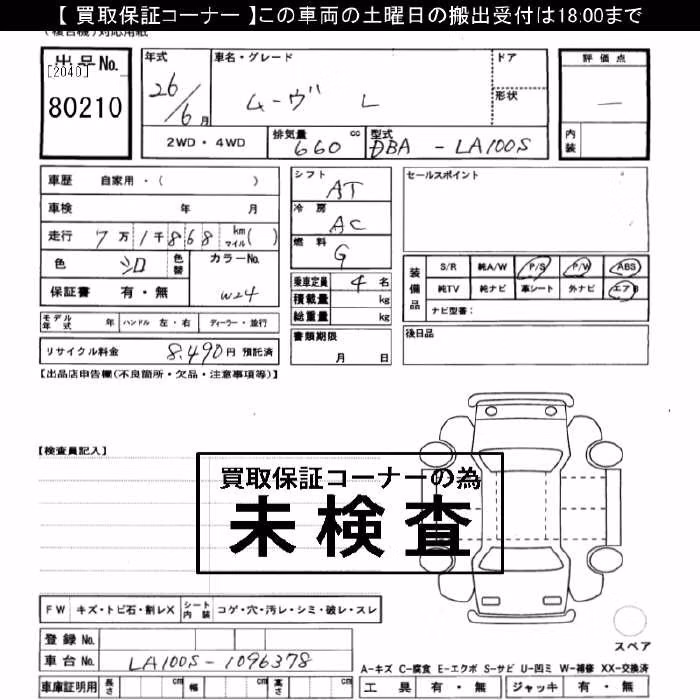 【 買取保証コーナー 】この車両の土曜日の搬出受付は18:00まで
出品No.
[2040]
80210
年式
26/6月
車名・グレード
ムーヴ L
ドア
形状
評価点
—
内装
2WD・4WD
排気量 660 cc
型式 DBA - LA100S
車歴 自家用・( )
車検 年 月
走行 7万1千868 km マイル( )
色 シロ 色替
カラーNo. W24
保証書 有・無
シフト AT
冷房 AC
燃料 G
乗車定員 4 名
積載量 kg
総重量 kg
書類期限
月 日
セールスポイント
装備品
S/R 純A/W P/S P/W ABS
純TV 純ナビ 革シート 外ナビ エアB
ナビ型番:
後日品
モデル年式 年 ハンドル 左・右 ディーラー・並行
リサイクル料金 8,490円 預託済
【出品店申告欄(不良箇所・欠品・注意事項等)】
【検査員記入】
買取保証コーナーの為
未検査
FW キズ・トビ石・割レX シート内装 コゲ・穴・汚レ・シミ・破レ・スレ
登録No.
車台No. LA100S-1096378
車庫証明用 長さ cm 幅 cm 高さ cm
スペア
A-キズ C-腐食 E-エクボ S-サビ U-凹ミ W-補修 XX-交換済
工具 有・無 ジャッキ 有・無